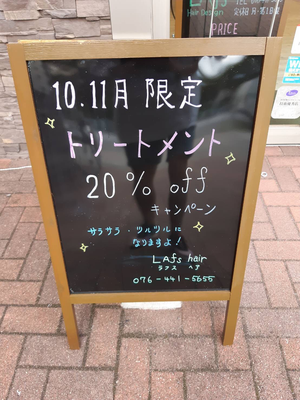 LAfs
Hair Design
PRICE
10.11月 限定
トリートメント
20% off
キャンペーン
サラサラ・ツルツルに
なりますよ!
LAfs hair
ラフス ヘア
076-441-5655